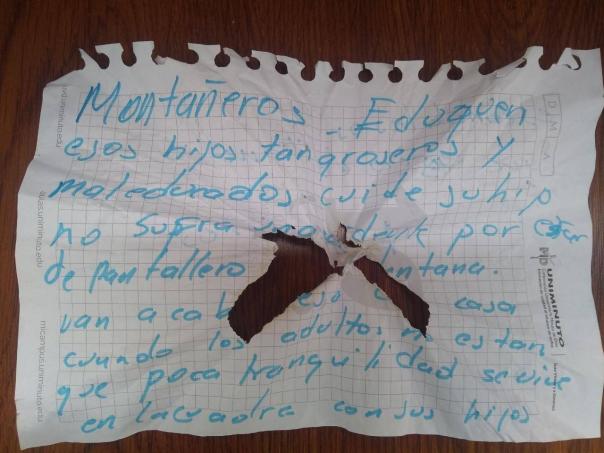 Montañeros Eduquen
esos hijos tan groseros y
maleducados. cuide su hijo
no sufra por estar
de pantallero ventana.
van a acab esa casa
cuando los adultos no estan
que poca tranquilidad se vive
en la cuadra con sus hijos
UNIMINUTO